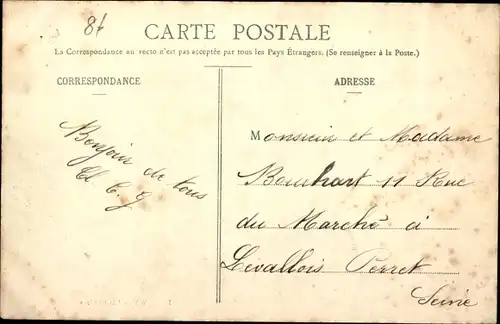 8f
CARTE POSTALE
La Correspondance au recto n'est pas acceptée par tous les Pays Étrangers. (Se renseigner à la Poste.)
CORRESPONDANCE
ADRESSE
Bonjour
de tous
Monsieur et Madame
Bouchart 11 Rue
du Marché à
Levallois Perret
Seine